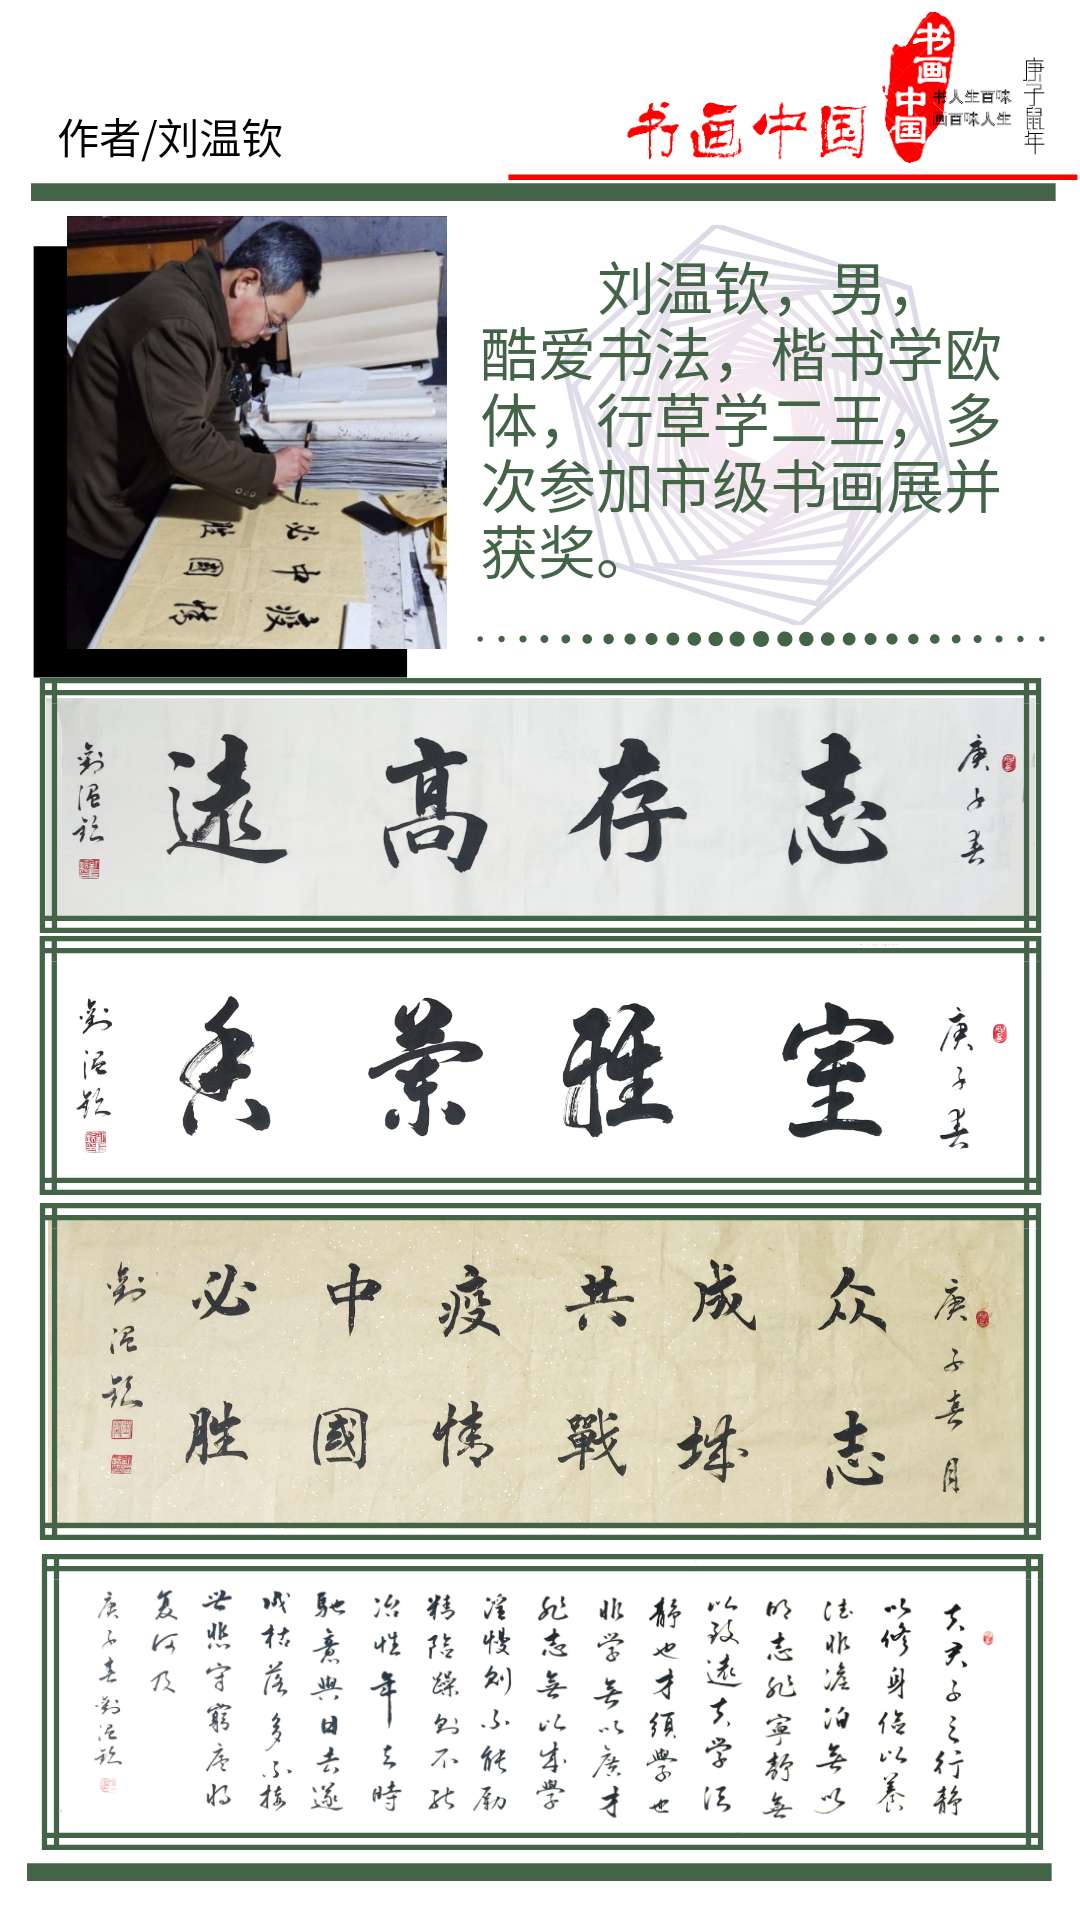 作者/刘温钦
书画中国
书画
中国
书人生百味
画百味人生
庚子鼠年
刘温钦，男，
酷爱书法，楷书学欧
体，行草学二王，多
次参加市级书画展并
获奖。
必中疫
胜國情
庚子春
志存高遠
劉温钦
庚子春
室雅蘭香
劉温钦
庚子春月
众志
成城
共戰
疫情
中國
必胜
劉温钦
夫君子之行静
以修身俭以養
德非澹泊無以
明志非寧靜無
以致遠夫学须
静也才須學也
非学無以廣才
非志無以成學
淫慢则不能励
精险躁则不能
冶性年与時
馳意與日去遂
成枯落多不接
世悲守窮庐将
复何及
庚子春劉温钦